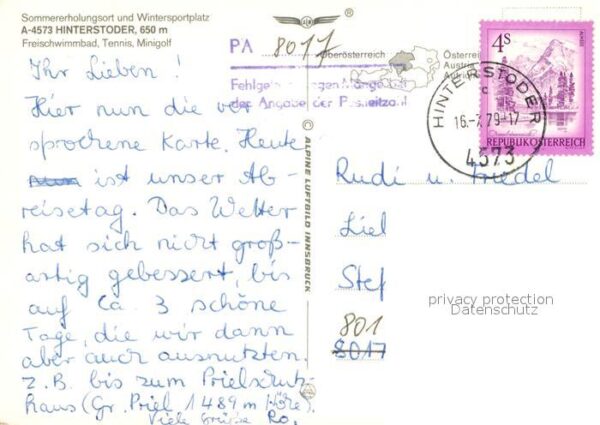 Sommererholungsort und Wintersportplatz
A-4573 HINTERSTODER, 650 m
Freischwimmbad, Tennis, Minigolf
PA 8017
Oberösterreich
Österreich
Austria
Fehlgeleitet wegen Mangelhaf
der Angabe der Postleitzahl
4S
REPUBLIK ÖSTERREICH
HINTERSTODER
c
16.-7.79-17
4573
Ihr Lieben!
Hier nun die ver
sprochene Karte. Heute
ist unser Ab-
reisetag. Das Wetter
hat sich nicht groß-
artig gebessert, bis
auf ca. 3 schöne
Tage, die wir dann
aber auch ausnutzten.
z.B. bis zum Prielschutz-
haus (Gr. Priel 1489 m Höhe).
Viele Grüße Ro.
© ALPINE LUFTBILD INNSBRUCK
Rudi u. Friedel
Liel
Stef
801
8017
privacy protection
Datenschutz